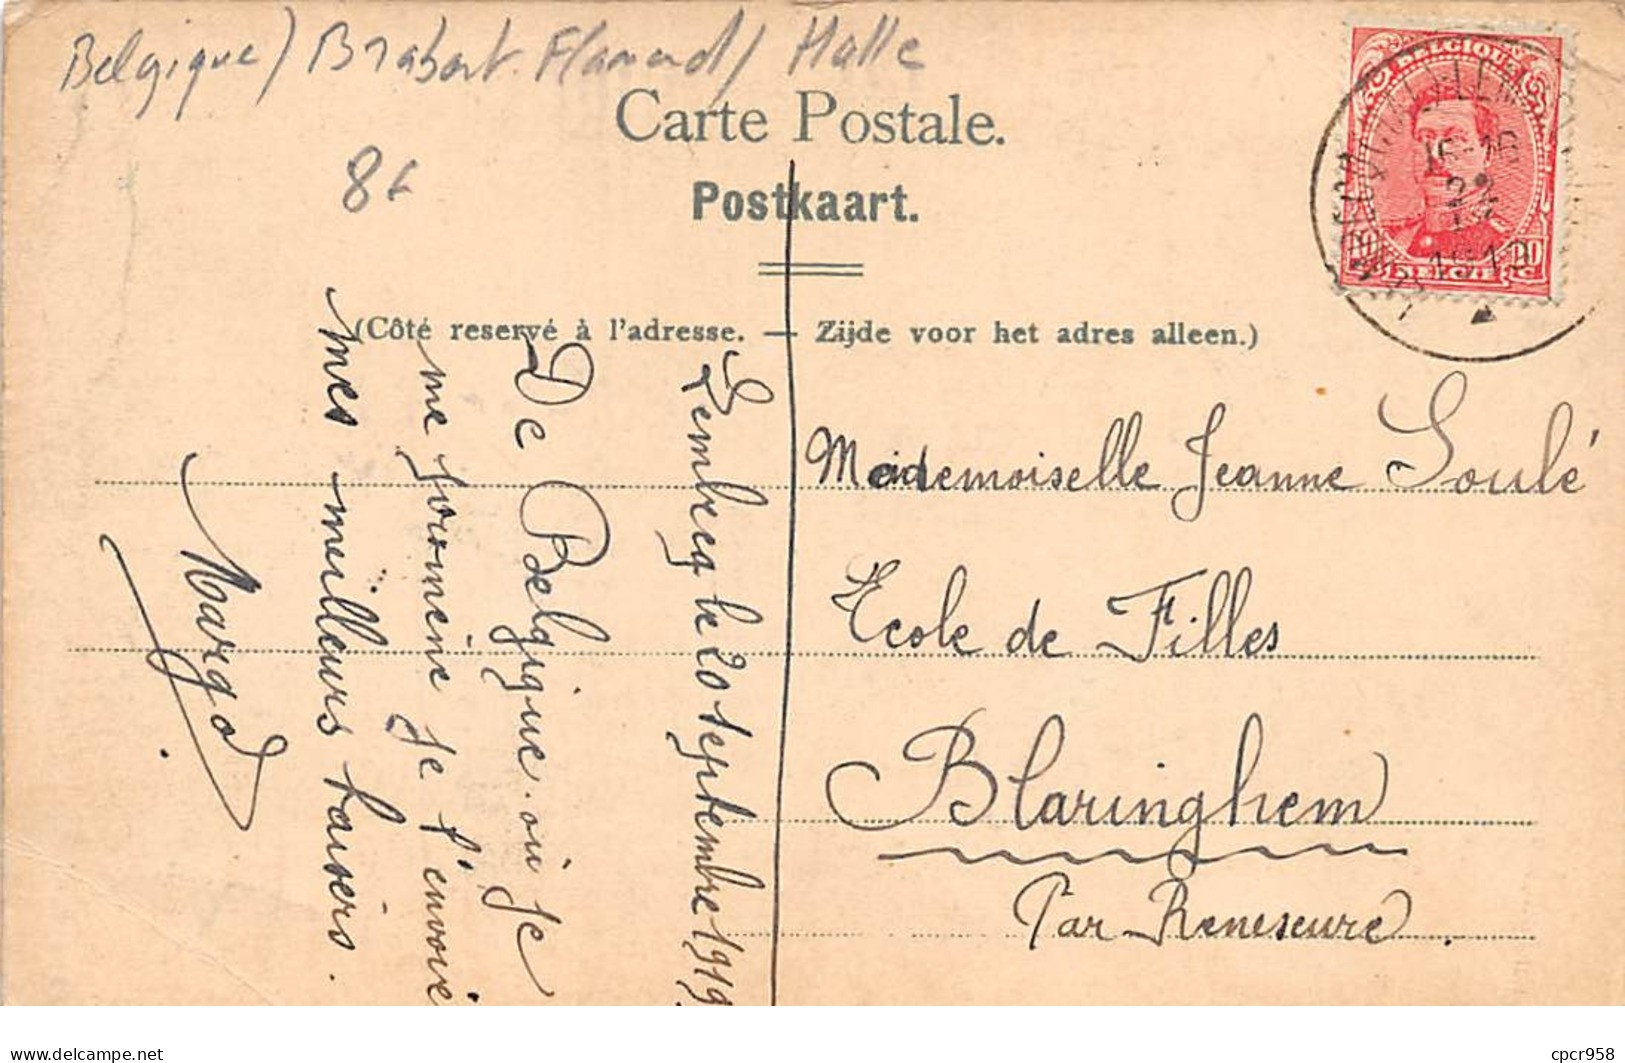 Belgique / Brabant Flamand / Halle
8€
Carte Postale.
Postkaart.
(Côté reservé à l'adresse. — Zijde voor het adres alleen.)
BELGIQUE
15-16
22
IX
1919
10
BELGIE
Lembecq le 20 septembre 1919
De Belgique. où je
me promène je t'envoie
mes meilleurs baisers.
Margot
Mademoiselle Jeanne Soulé
Ecole de Filles
Blaringhem
Par Renescure.
delcampe.net
cpcr958